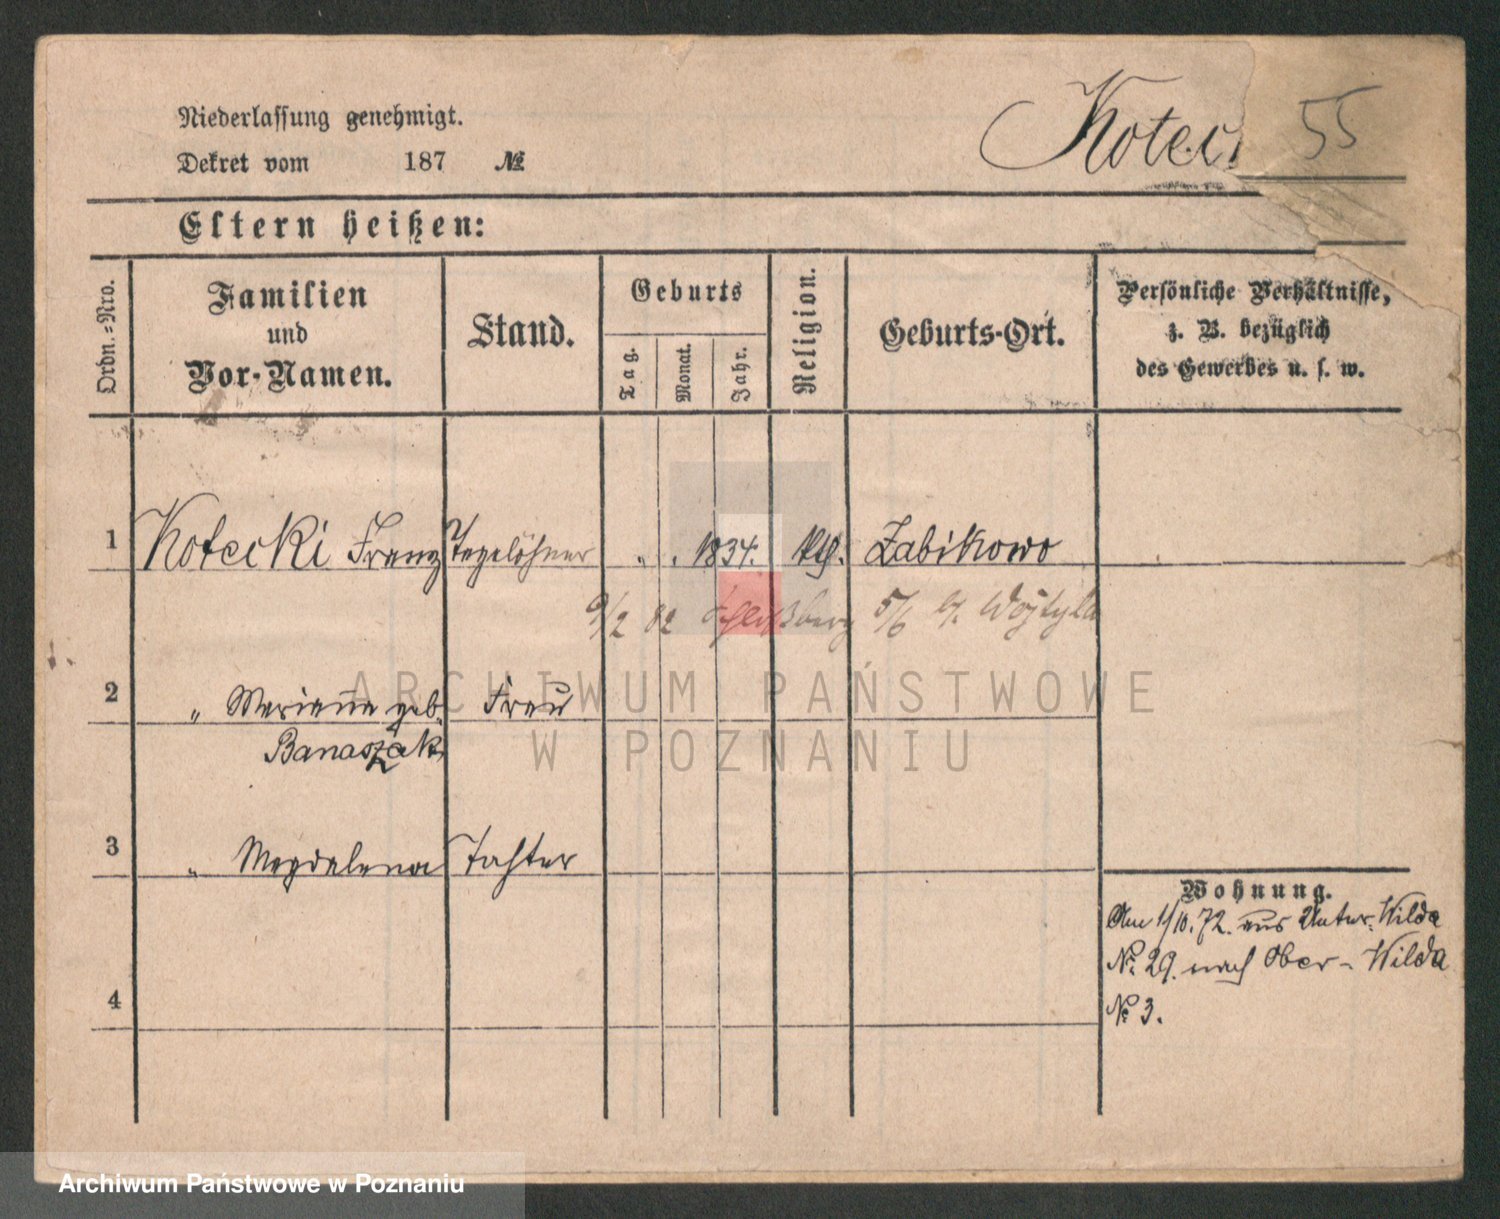 Niederlassung genehmigt.
Dekret vom 187 №
Kotec
55
Eltern heißen:
Ordn.=Nro.
Familien
und
Vor-Namen.
Stand.
Geburts
Tag.
Monat.
Jahr.
Religion.
Geburts-Ort.
Persönliche Verhältnisse,
z. B. bezüglich
des Gewerbes u. s. w.
1 Kotecki Franz Tagelöhner " " 1834. kth. Zabikowo
9/2 82 5/6 Wojtyla
2 " Marianna geb. Frau
Banaszak
3 " Magdalena Tochter
4
Wohnung.
Am 1/10. 72. aus Unter-Wilda
№ 29. nach Ober-Wilda
№ 3.
ARCHIWUM PAŃSTWOWE
W POZNANIU
Archiwum Państwowe w Poznaniu